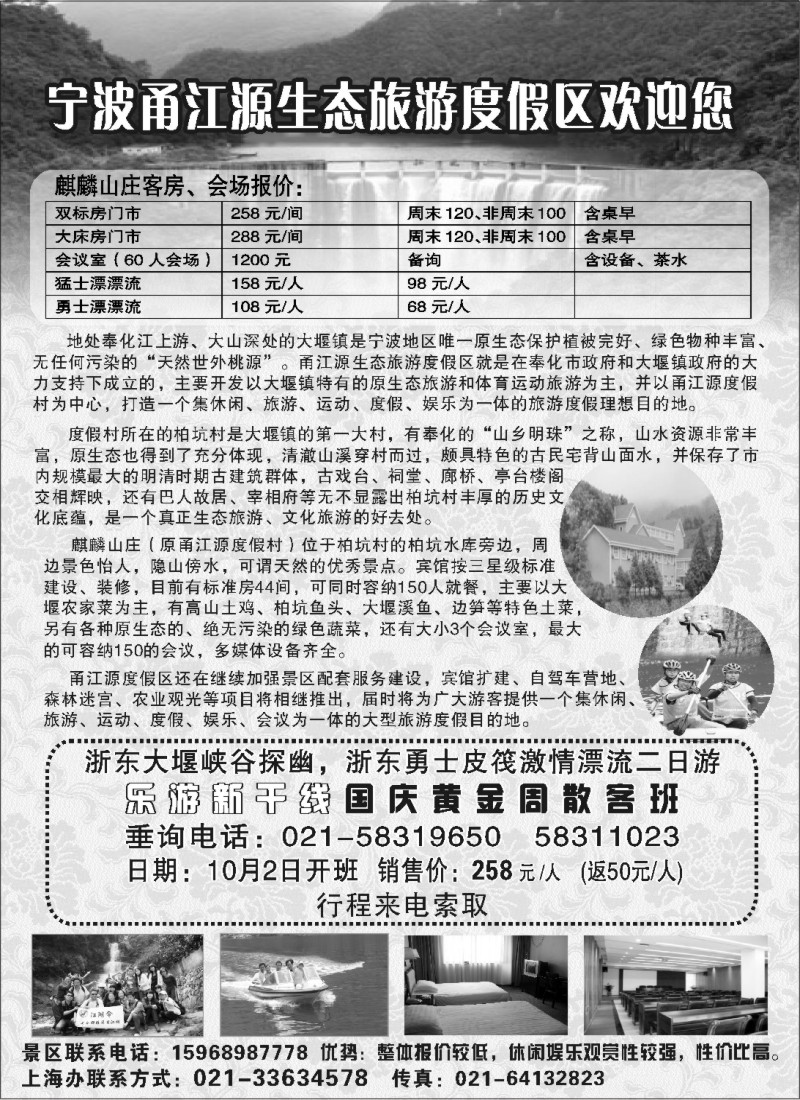 宁波甬江源生态旅游度假区欢迎您
麒麟山庄客房、会场报价：
双标房门市 258 元/间 周末 120、非周末 100 含桌早
大床房门市 288 元/间 周末 120、非周末 100 含桌早
会议室（60 人会场） 1200 元 备询 含设备、茶水
猛士漂漂流 158 元/人 98 元/人
勇士漂漂流 108 元/人 68 元/人
地处奉化江上游、大山深处的大堰镇是宁波地区唯一原生态保护植被完好、绿色物种丰富、
无任何污染的“天然世外桃源”。甬江源生态旅游度假区就是在奉化市政府和大堰镇政府的大
力支持下成立的，主要开发以大堰镇特有的原生态旅游和体育运动旅游为主，并以甬江源度假
村为中心，打造一个集休闲、旅游、运动、度假、娱乐为一体的旅游度假理想目的地。
度假村所在的柏坑村是大堰镇的第一大村，有奉化的“山乡明珠”之称，山水资源非常丰
富，原生态也得到了充分体现，清澈山溪穿村而过，颇具特色的古民宅背山面水，并保存了市
内规模最大的明清时期古建筑群体，古戏台、祠堂、廊桥、亭台楼阁
交相辉映，还有巴人故居、宰相府等无不显露出柏坑村丰厚的历史文
化底蕴，是一个真正生态旅游、文化旅游的好去处。
麒麟山庄（原甬江源度假村）位于柏坑村的柏坑水库旁边，周
边景色怡人，隐山傍水，可谓天然的优秀景点。宾馆按三星级标准
建设、装修，目前有标准房44间，可同时容纳150人就餐，主要以大
堰农家菜为主，有高山土鸡、柏坑鱼头、大堰溪鱼、边笋等特色土菜，
另有各种原生态的、绝无污染的绿色蔬菜，还有大小3个会议室，最大
的可容纳150的会议，多媒体设备齐全。
甬江源度假区还在继续加强景区配套服务建设，宾馆扩建、自驾车营地、
森林迷宫、农业观光等项目将相继推出，届时将为广大游客提供一个集休闲、
旅游、运动、度假、娱乐、会议为一体的大型旅游度假目的地。
浙东大堰峡谷探幽，浙东勇士皮筏激情漂流二日游
乐游新干线国庆黄金周散客班
垂询电话：021-58319650 58311023
日期：10月2日开班 销售价：258 元/人 （返50元/人）
行程来电索取
景区联系电话：15968987778 优势：整体报价较低，休闲娱乐观赏性较强，性价比高。
上海办联系方式：021-33634578 传真：021-64132823